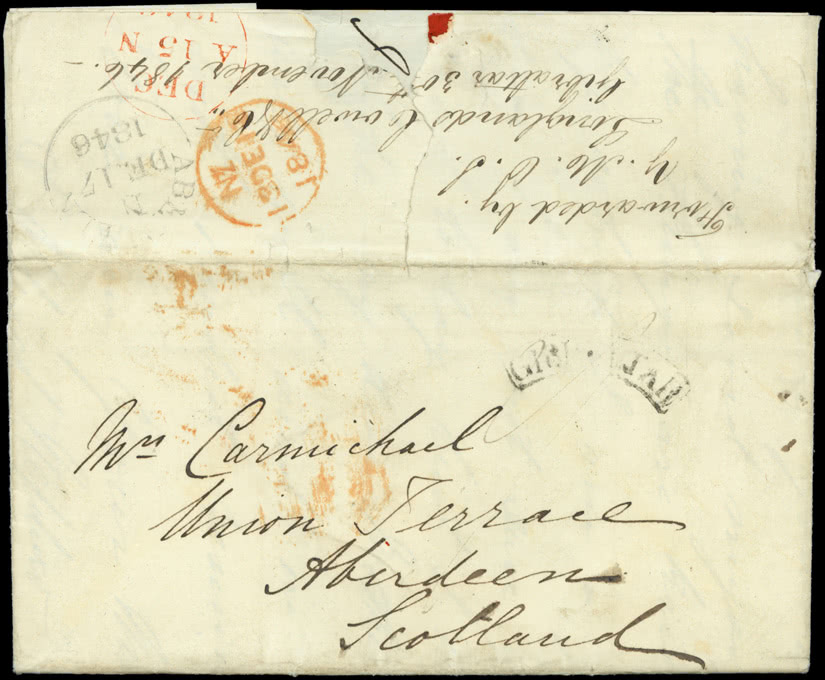 Forwarded by
Y. M. O. S.
Longlands Cowell & Co.
Gibraltar 30th November 1846.
DEC
A 15 N
1846
DE 17
1846
13 DE 13
184
Mrs Carmichael
Union Terrace
Aberdeen
Scotland